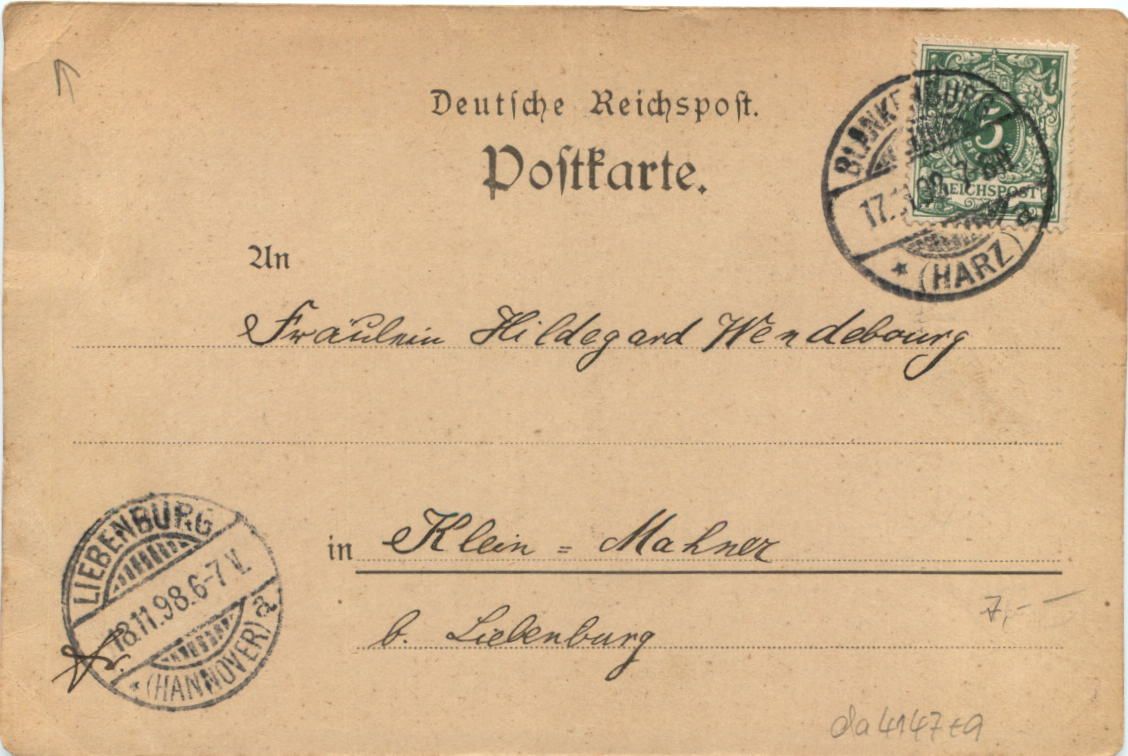 Deutsche Reichspost.
Postkarte.
BLANKENBURG
5
REICHSPOST
a
* (HARZ)
An
Fräulein Hildegard Wendebourg
LIEBENBURG
18.11.98.6-7 V.
a
* (HANNOVER)
in Klein = Mahner
b. Liebenburg
7,-